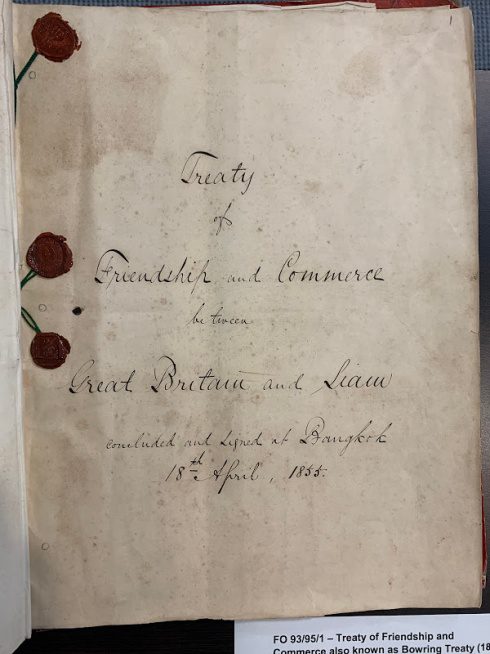 1
Treaty
of
Friendship and Commerce
between
Great Britain and Siam
concluded and signed at Bangkok
18th April, 1855.
FO 93/95/1 – Treaty of Friendship and
Commerce also known as Bowring Treaty (18